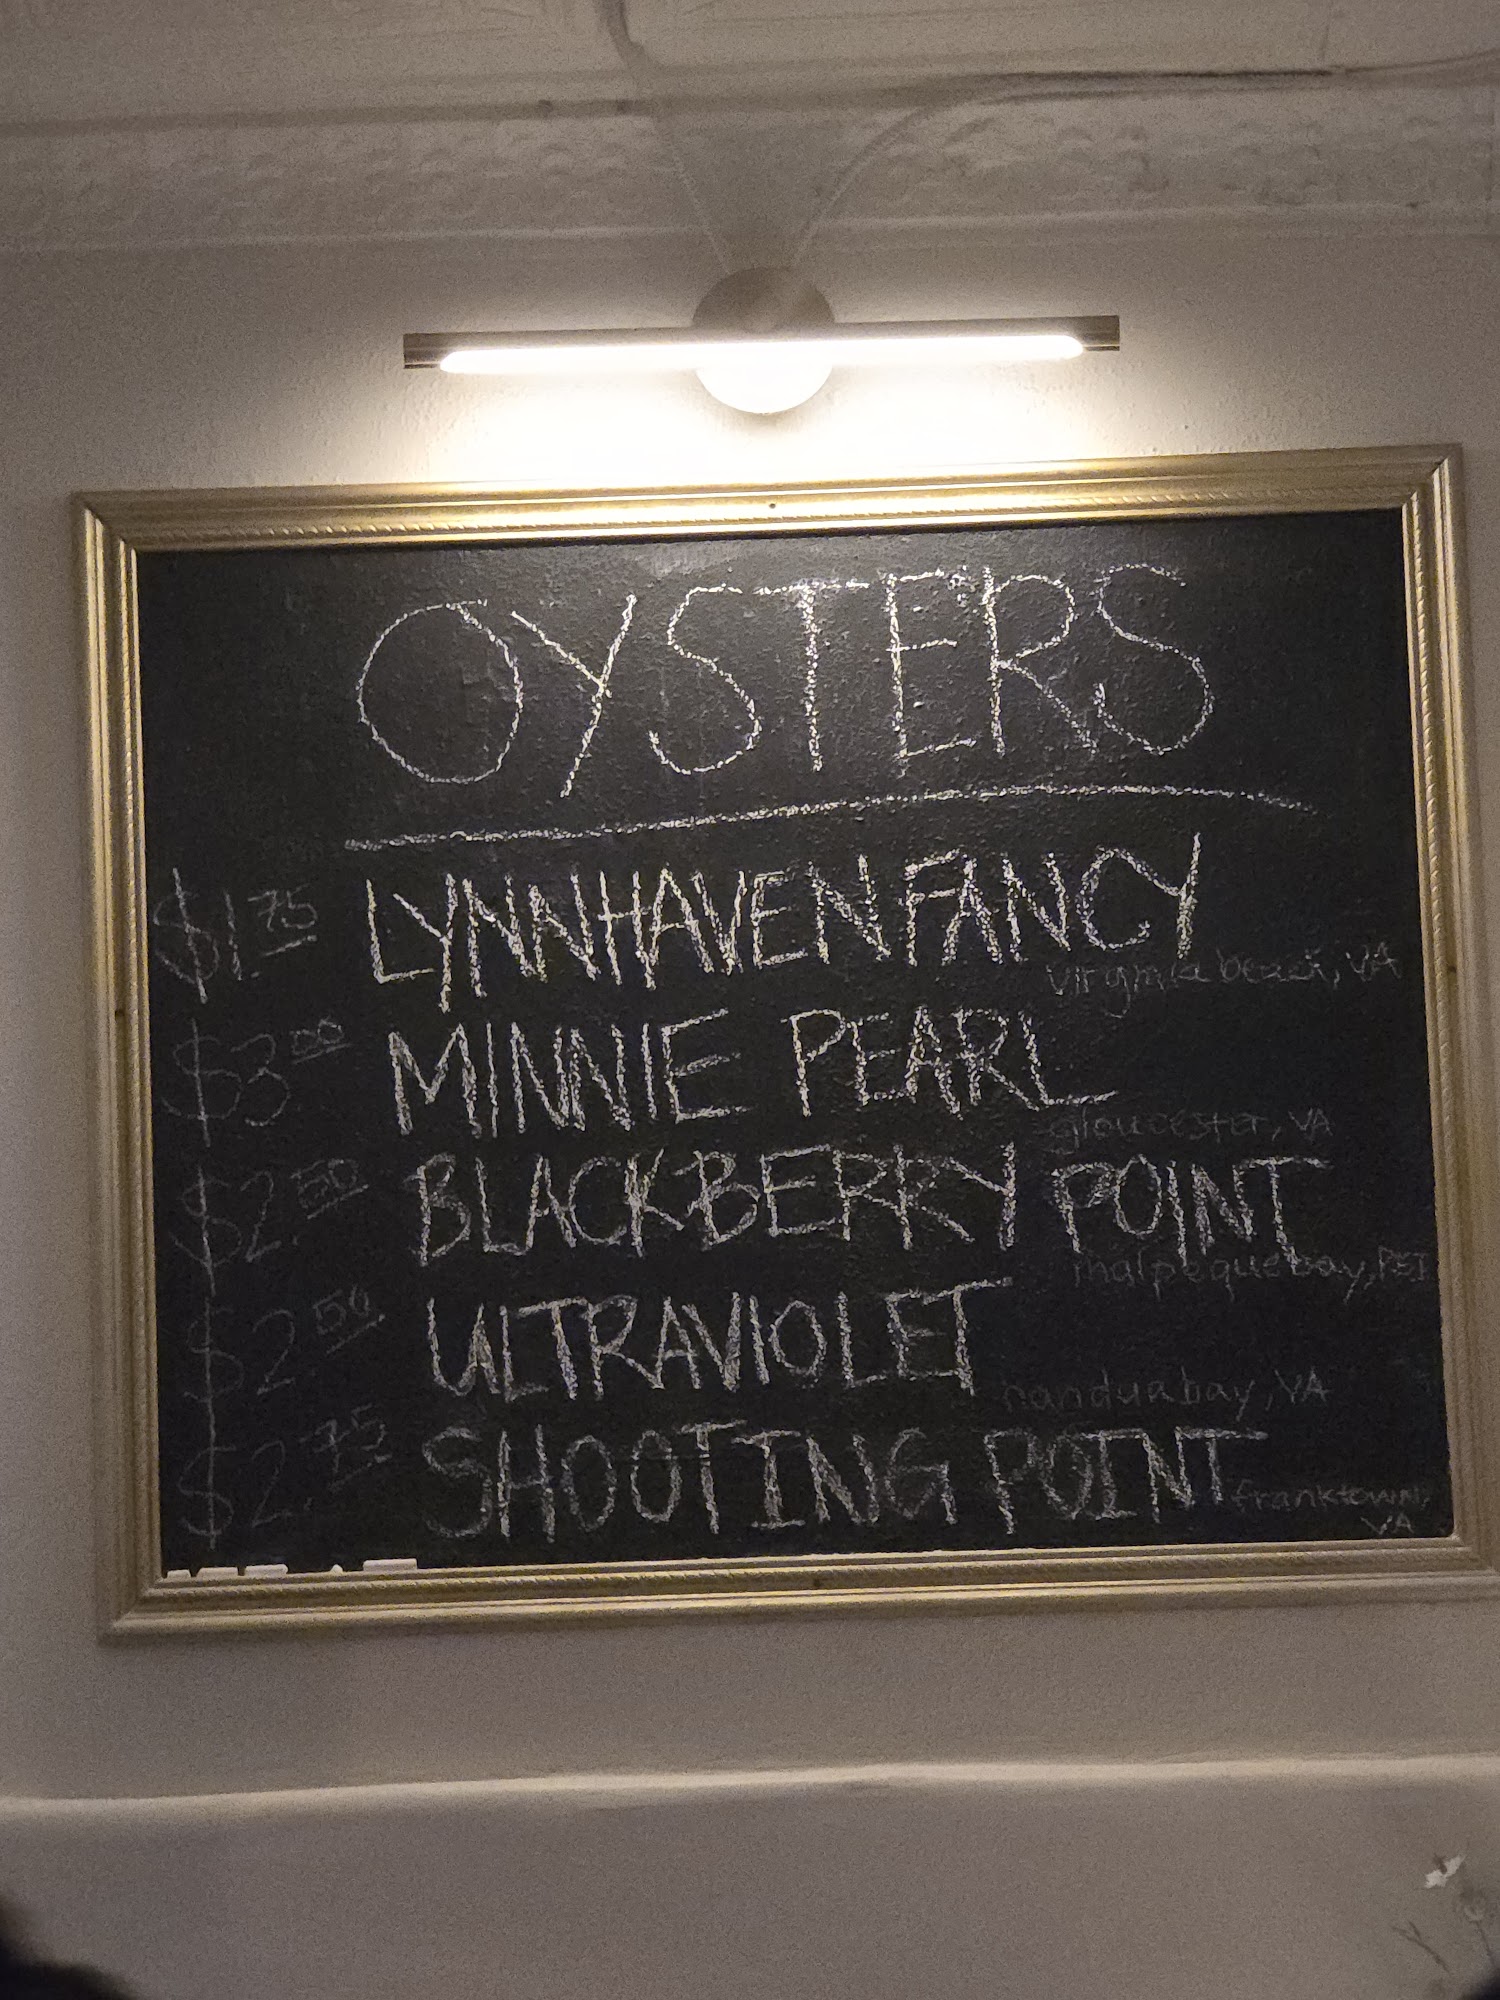 OYSTERS
$1.75 LYNNHAVEN FANCY
virginia beach, VA
$3.00 MINNIE PEARL
gloucester, VA
$2.50 BLACKBERRY POINT
malpeque bay, PEI
$2.50 ULTRAVIOLET
nandua bay, VA
$2.75 SHOOTING POINT
franktown,
VA